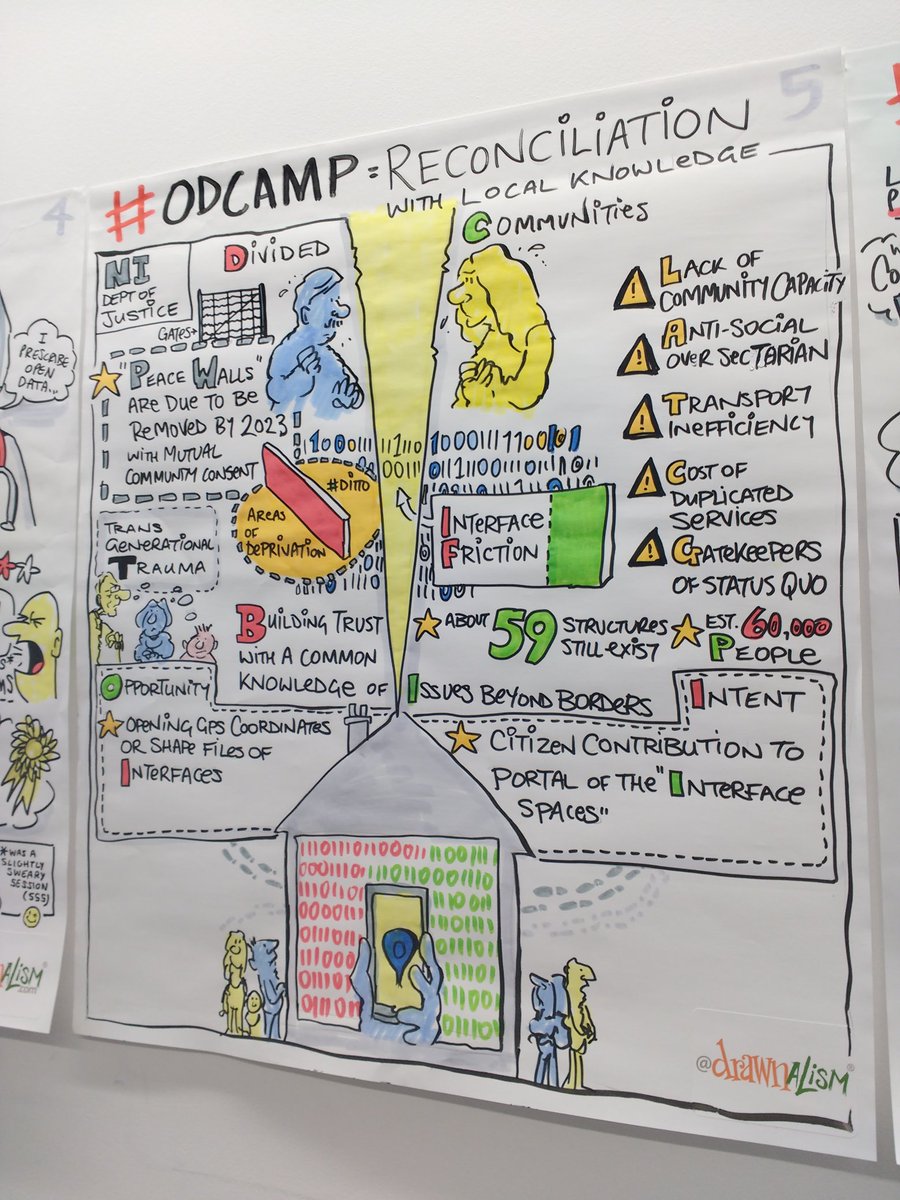 5
#ODCAMP = RECONCILIATION
WITH LOCAL KNOWLEDGE
NI
DEPT OF
JUSTICE
DIVIDED
COMMUNITIES
GATES→
"PEACE WALLS"
ARE DUE TO BE
REMOVED BY 2023
WITH MUTUAL
COMMUNITY CONSENT
LACK OF
COMMUNITY CAPACITY
ANTI-SOCIAL
OVER SECTARIAN
TRANSPORT
INEFFICIENCY
COST OF
DUPLICATED
SERVICES
GATEKEEPERS
OF STATUS QUO
#DITTO
AREAS
OF
DEPRIVATION
INTERFACE
FRICTION
TRANS
GENERATIONAL
TRAUMA
ABOUT 59 STRUCTURES
STILL EXIST
EST. 60,000
PEOPLE
BUILDING TRUST
WITH A COMMON
KNOWLEDGE OF ISSUES BEYOND BORDERS
OPPORTUNITY
OPENING GPS COORDINATES
OR SHAPE FILES OF
INTERFACES
INTENT
CITIZEN CONTRIBUTION TO
PORTAL OF THE "INTERFACE
SPACES"
@drawnALISM
4
I
PRESCRIBE
OPEN
DATA...
*WAS A
SLIGHTLY
SWEARY
SESSION
(SSS)